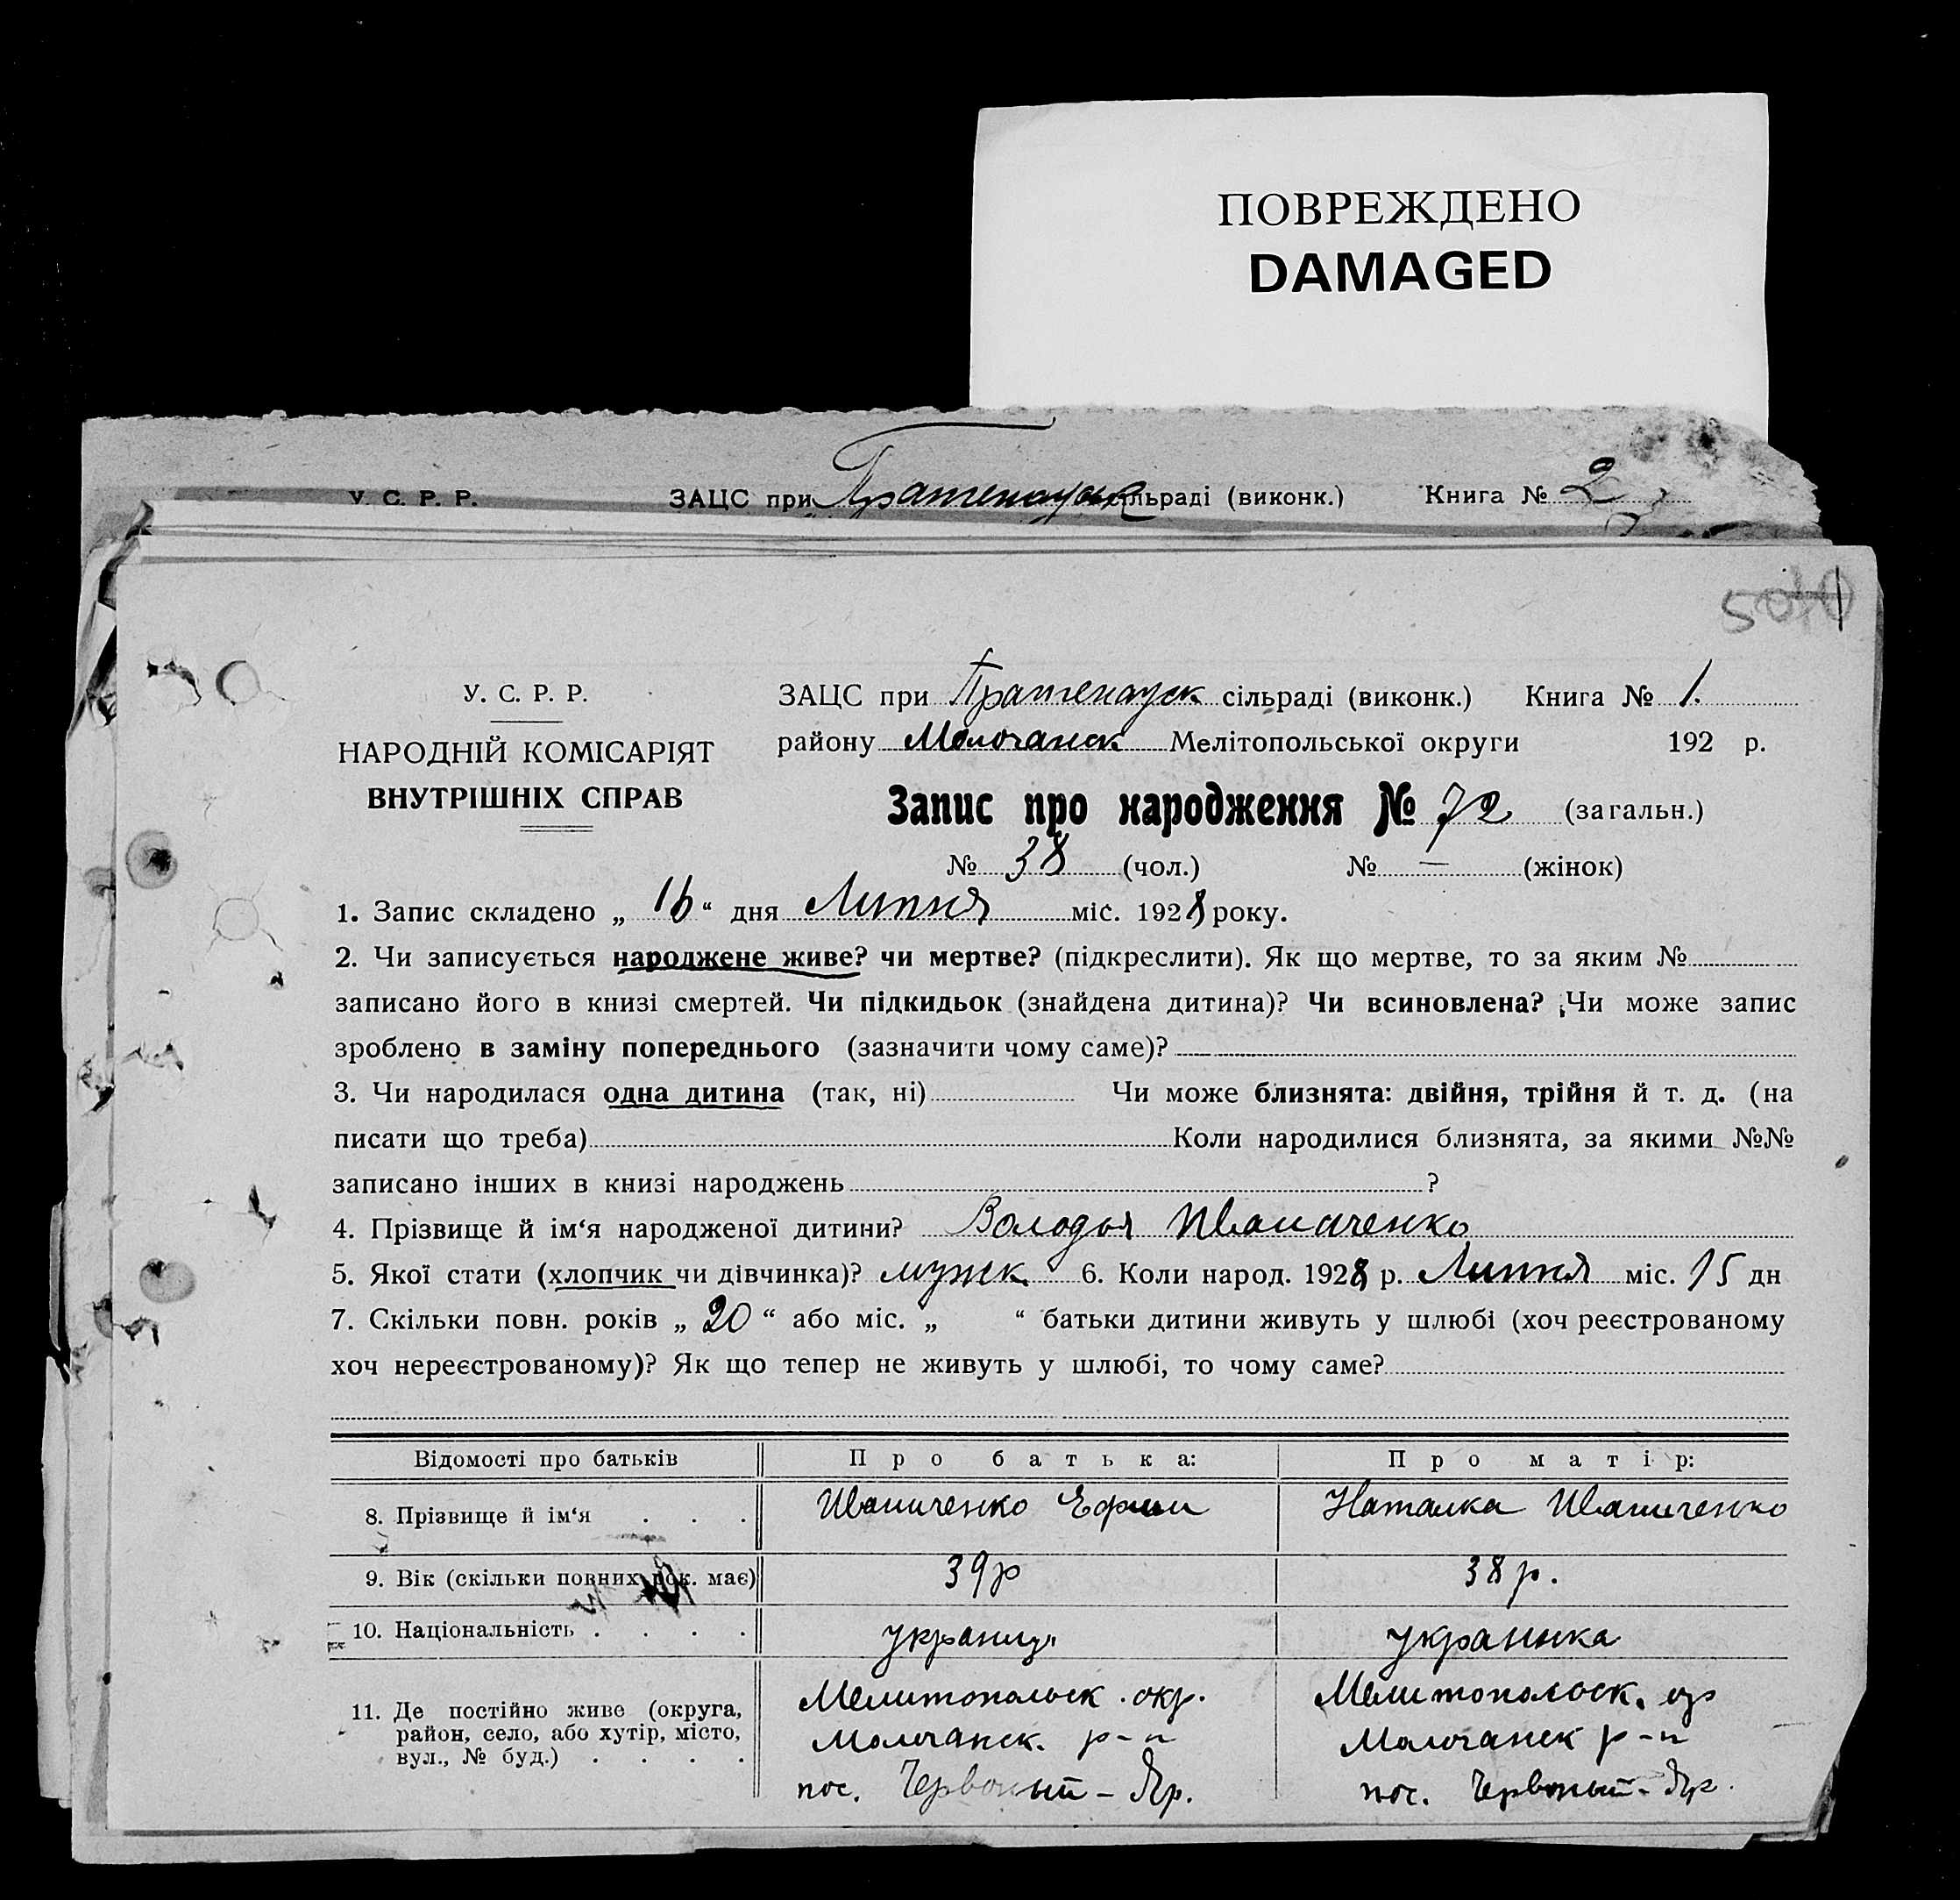 ПОВРЕЖДЕНО
DAMAGED
У. С. Р. Р. ЗАЦС при Пратенауск сільраді (виконк.) Книга № 2
У. С. Р. Р. ЗАЦС при Пратенауск сільраді (виконк.) Книга № 1.
НАРОДНІЙ КОМІСАРІЯТ району Молочанск Мелітопольської округи 192 р.
ВНУТРІШНІХ СПРАВ Запис про народження № 72 (загальн.)
№ 38 (чол.) № — (жінок)
1. Запис складено „ 16 “ дня Липня міс. 1928 року.
2. Чи записується народжене живе? чи мертве? (підкреслити). Як що мертве, то за яким №
записано його в книзі смертей. Чи підкидьок (знайдена дитина)? Чи всиновлена? Чи може запис
зроблено в заміну попереднього (зазначити чому саме)?
3. Чи народилася одна дитина (так, ні) Чи може близнята: двійня, трійня й т. д. (на
писати що треба) Коли народилися близнята, за якими №№
записано інших в книзі народжень ?
4. Прізвище й ім‘я народженої дитини? Володья
5. Якої стати (хлопчик чи дівчинка)? мужск. 6. Коли народ. 1928 р. Липня міс. 15 дн
7. Скільки повн. років „ 20 “ або міс. „ “ батьки дитини живуть у шлюбі (хоч реєстрованому
хоч нереєстрованому)? Як що тепер не живуть у шлюбі, то чому саме?
Відомості про батьків Про батька: Про матір:
8. Прізвище й ім‘я . . . Ефим Наталка
9. Вік (скільки повних рок. має) 39 р 38 р.
10. Національність . . . . украинка
11. Де постійно живе (округа, Мелитопольск. окр. Мелитопольск.
район, село, або хутір, місто, Молочанск. р-н Молочанск р-н
вул., № буд.) . . . . пос. Червоный-Яр. пос. Червоный-Яр.